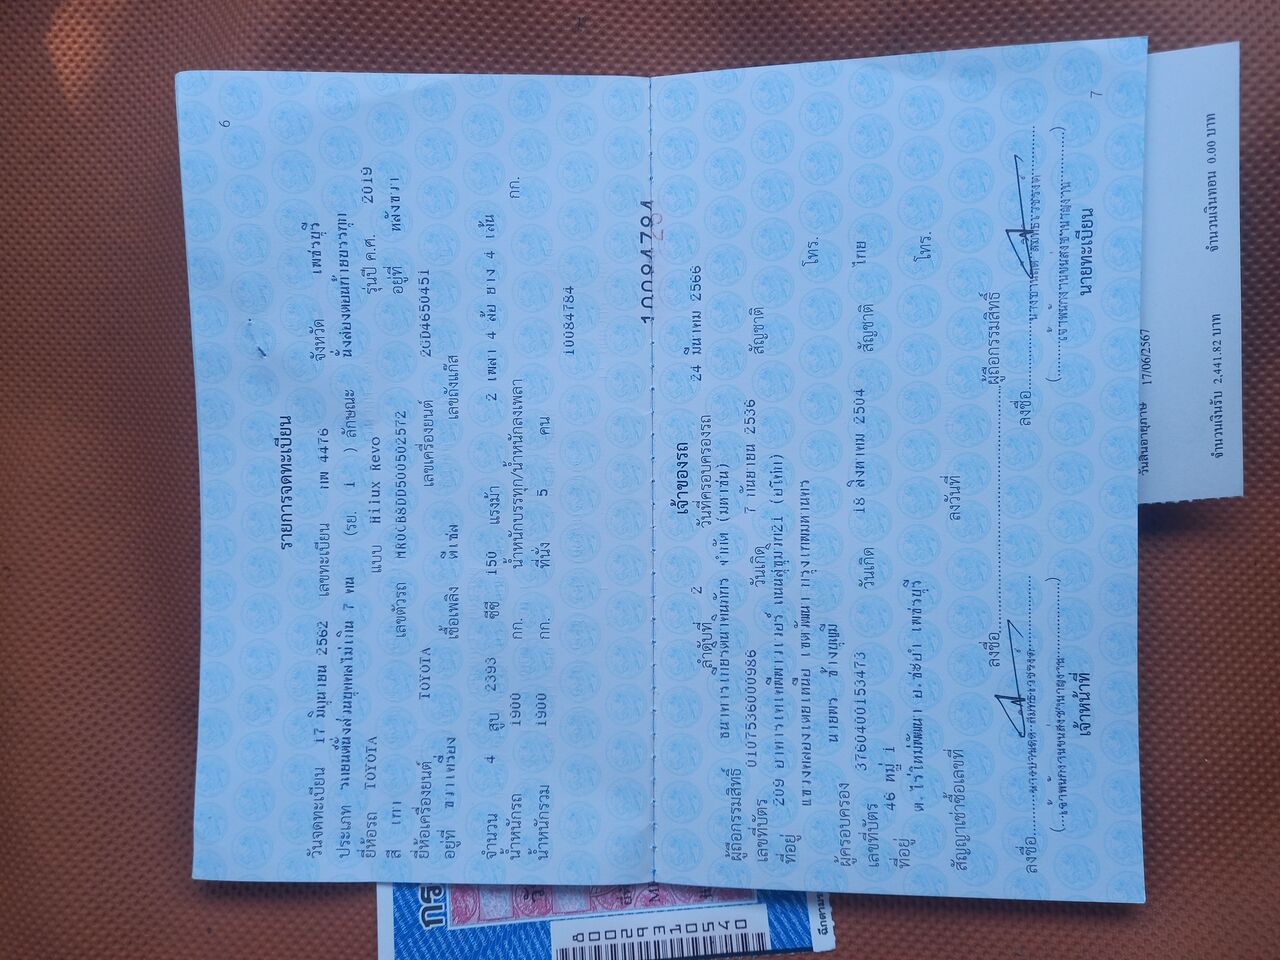 6
รายการจดทะเบียน
วันจดทะเบียน 17 มิถุนายน 2562 เลขทะเบียน กพ 4476 จังหวัด เพชรบุรี
ประเภท รถยนต์นั่งส่วนบุคคลไม่เกิน 7 คน (รย. 1 ) ลักษณะ นั่งสองตอนท้ายบรรทุก
ยี่ห้อรถ TOYOTA แบบ Hilux Revo รุ่นปี ค.ศ. 2019
สี เทา เลขตัวรถ MR0CB8DD500502572 อยู่ที่ หลังขวา
ยี่ห้อเครื่องยนต์ TOYOTA เลขเครื่องยนต์ 2GD4650451
อยู่ที่ เชื้อเพลิง ดีเซล เลขถังแก๊ส
จำนวน 4 สูบ 2393 ซีซี 150 แรงม้า 2 เพลา 4 ล้อ ยาง 4 เส้น
น้ำหนักรถ 1900 กก. น้ำหนักบรรทุก/น้ำหนักลงเพลา กก.
น้ำหนักรวม 1900 กก. ที่นั่ง 5 คน
10084784
10084784
เจ้าของรถ
ลำดับที่ 2 วันที่ครอบครองรถ 24 มีนาคม 2566
ผู้ถือกรรมสิทธิ์ ธนาคารเกียรตินาคินภัทร จำกัด (มหาชน)
เลขที่บัตร 0107536000986 วันเกิด 7 กันยายน 2536 สัญชาติ
ที่อยู่ 209 อาคารเคเคพีทาวเวอร์ ถนนสุขุมวิท21 (อโศก)
แขวงคลองเตยเหนือ เขตวัฒนา กรุงเทพมหานคร โทร.
ผู้ครอบครอง นายพร ช้างบุญมี
เลขที่บัตร 3760400153473 วันเกิด 18 สิงหาคม 2504 สัญชาติ ไทย
ที่อยู่ 46 หมู่ 1
ต. ไร่ใหม่พัฒนา อ.ชะอำ เพชรบุรี โทร.
สัญญาเช่าซื้อเลขที่ ลงวันที่
ลงชื่อ ผู้ถือกรรมสิทธิ์
ลงชื่อ ลงชื่อ
เจ้าหน้าที่ นายทะเบียน
7
วันสิ้นอายุภาษี 17/06/2567
จำนวนเงินรับ 2,441.82 บาท จำนวนเงินทอน 0.00 บาท
8002931054 0